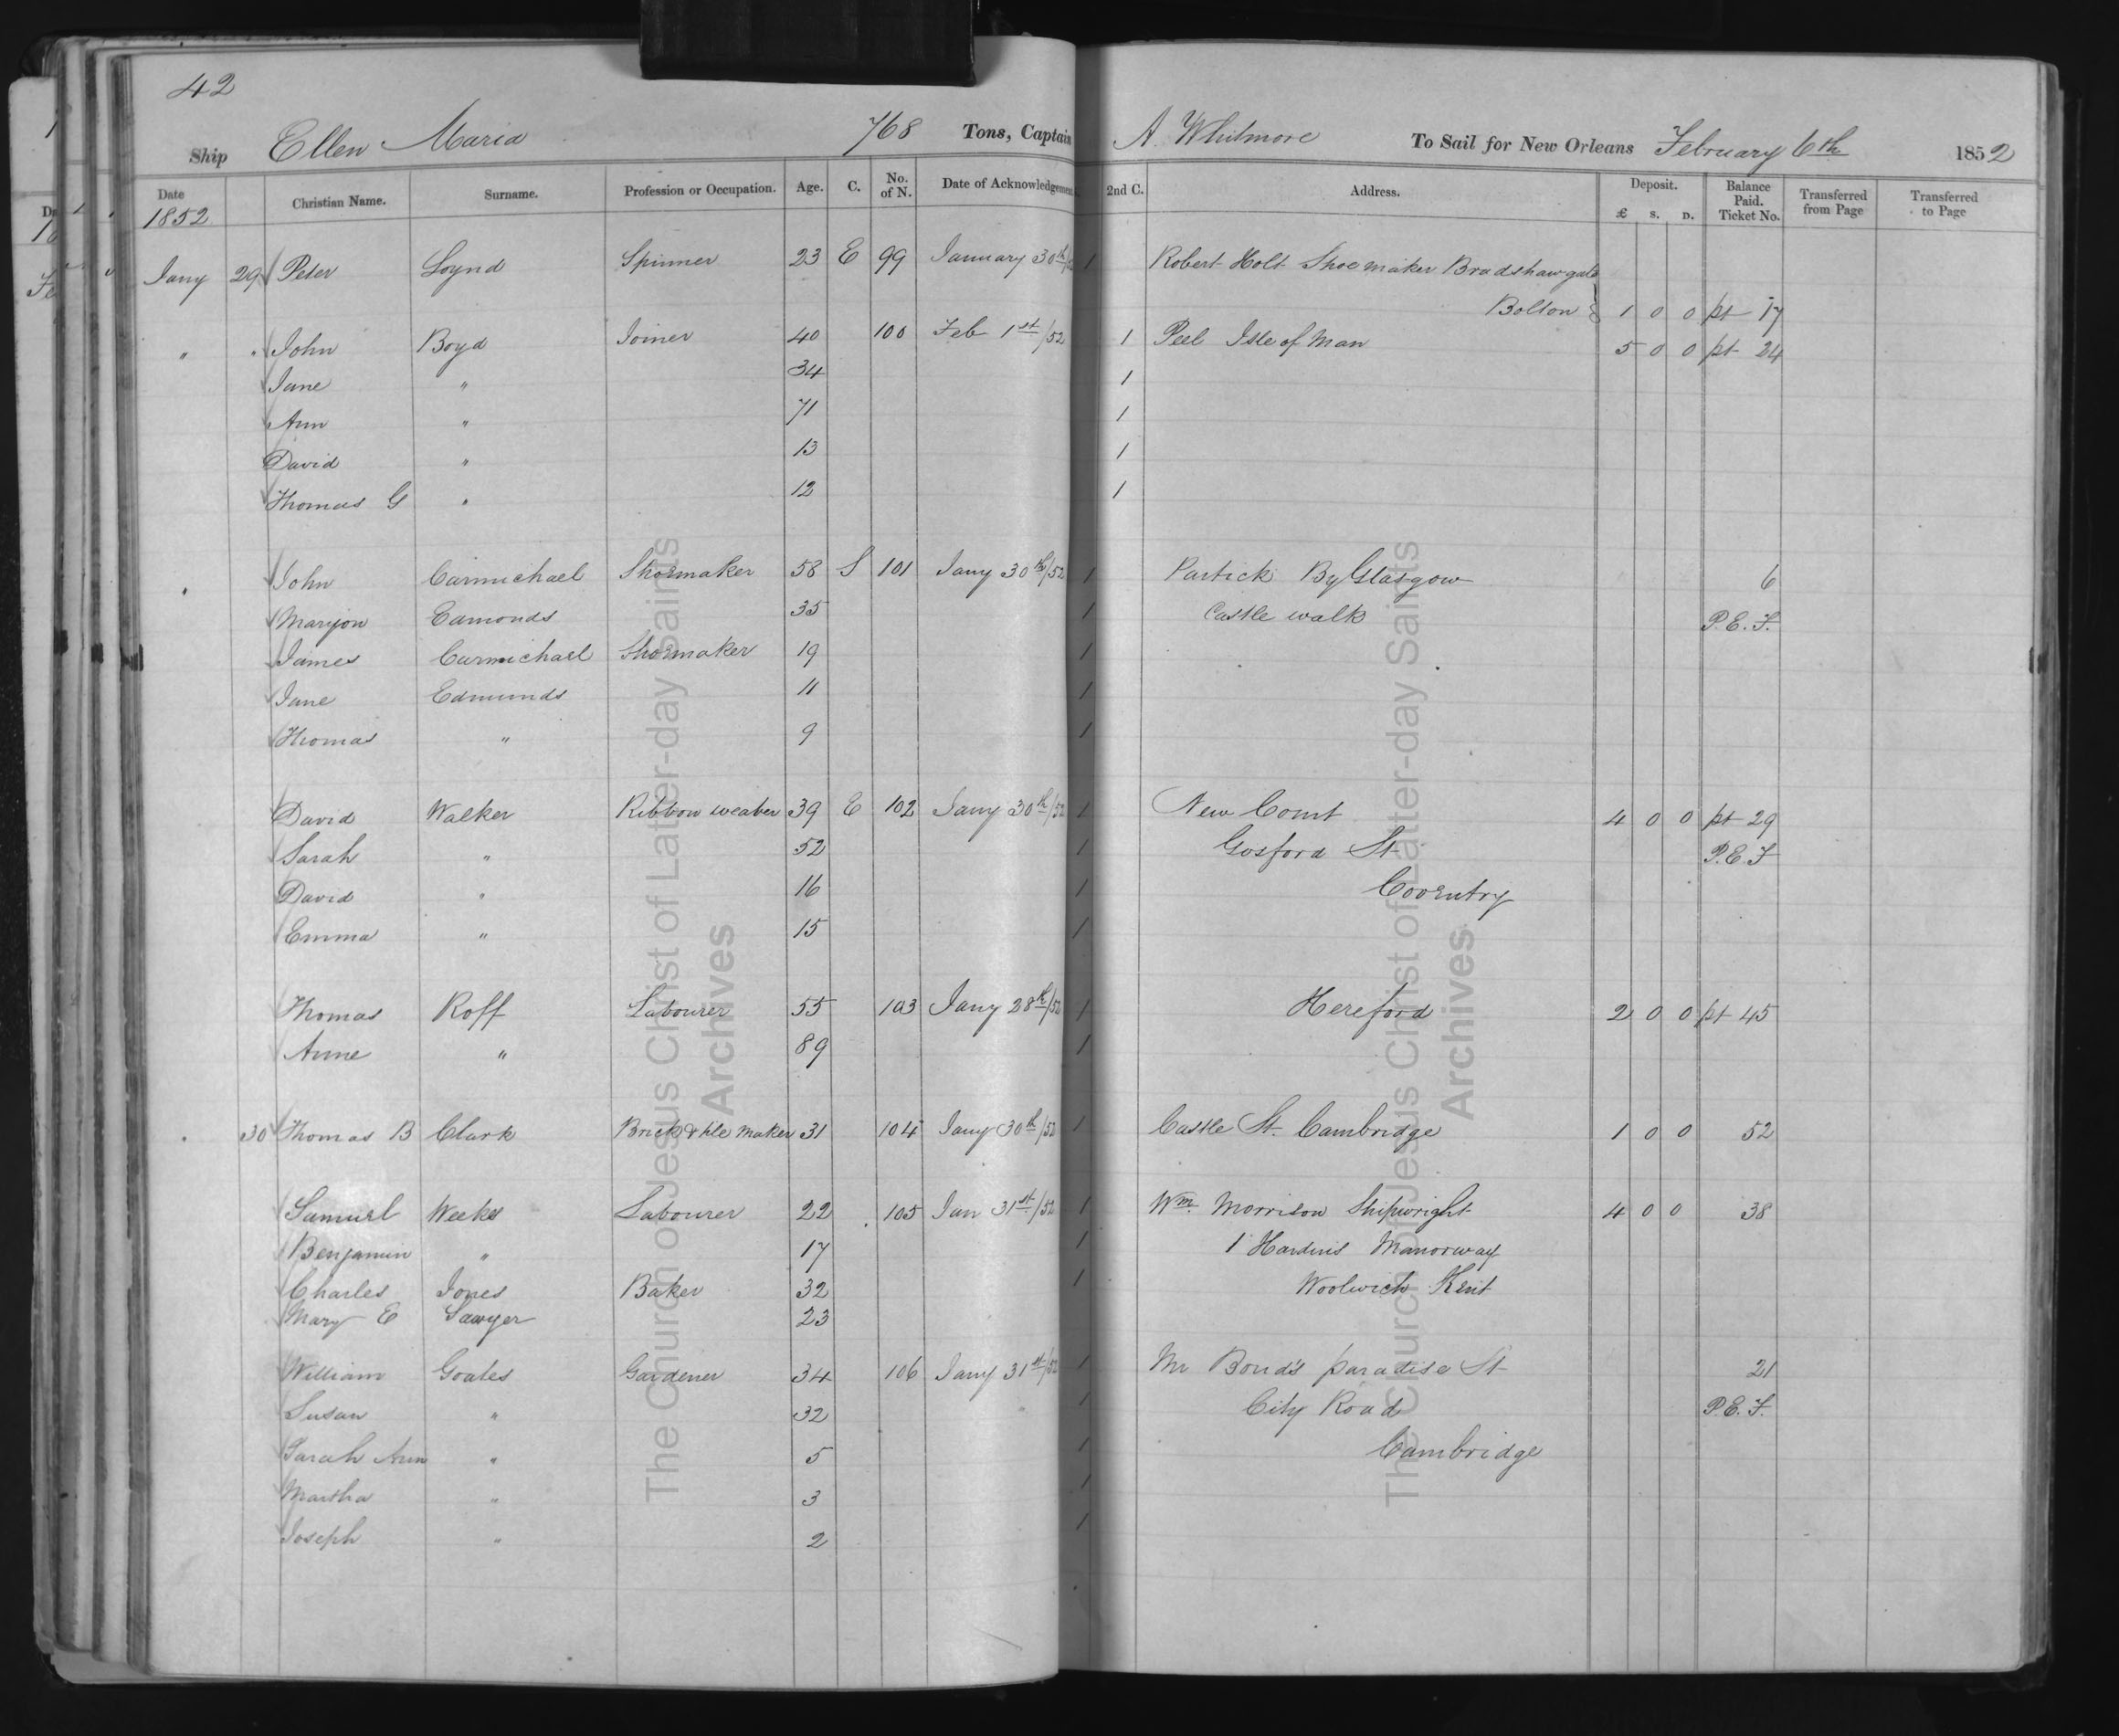 42
Ship Ellen Maria 768 Tons, Captain A. Whitmore To Sail for New Orleans February 6th 1852
Date Christian Name. Surname. Profession or Occupation. Age. C. No. of N. Date of Acknowledgement. 2nd C. Address. Deposit. £ s. D. Balance Paid. Ticket No. Transferred from Page Transferred to Page
1852
Jany 29 Peter Loynd Spinner 23 E 99 January 30th/52 1 Robert Holt Shoemaker Bradshawgate
Bolton 1 0 0 pt 17
" " John Boyd Joiner 40 100 Feb 1st/52 1 Peel Isle of Man 5 0 0 pt 24
Jane " 34 1
Ann " 71 1
David " 13 1
Thomas G " 12 1
John Carmichael Shoemaker 58 S 101 Jany 30th/52 1 Partick By Glasgow 6
Marijon Edmonds 35 1 Castle walk P.E.F.
James Carmichael Shoemaker 19 1
Jane Edmunds 11 1
Thomas " 9 1
David Walker Ribbon weaver 39 E 102 Jany 30th/52 1 New Court 4 0 0 pt 29
Sarah " 52 1 Gosford St P.E.F
David " 16 1 Coventry
Emma " 15 1
Thomas Roff Labourer 55 103 Jany 28th/52 1 Hereford 2 0 0 pt 45
Anne " 89 1
30 Thomas B Clark Brick & tile maker 31 104 Jany 30th/52 1 Castle St. Cambridge 1 0 0 52
Samuel Weeks Labourer 22 105 Jan 31st/52 1 Wm. Morrison Shipwright 4 0 0 38
Benjamin " 17 1 1 Manorway
Charles Jones Baker 32 1 Woolwich Kent
Mary E Sawyer 23
William Goates Gardener 34 106 Jany 31st/52 1 Mr Bond's paradise St 21
Susan " 32 " 1 City Road P.E.F.
Sarah Ann " 5 1 Cambridge
Martha " 3 1
Joseph " 2 1
The Church of Jesus Christ of Latter-day Saints
Archives
The Church of Jesus Christ of Latter-day Saints
Archives